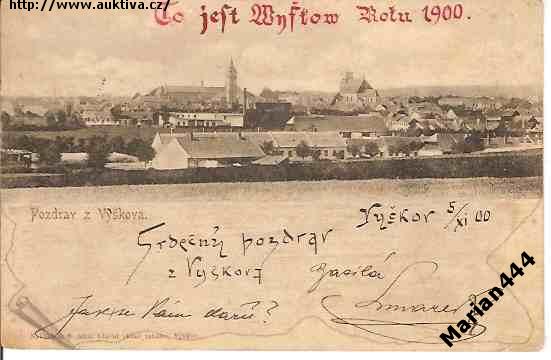 http://www.auktiva.cz/
To jest Wyškow Roku 1900.
Pozdrav z Vyškova.
Vyškov 5/XI 00
Srdečný pozdrav
z Vyškova
zasílá
Jak se Vám daří?
Marian444